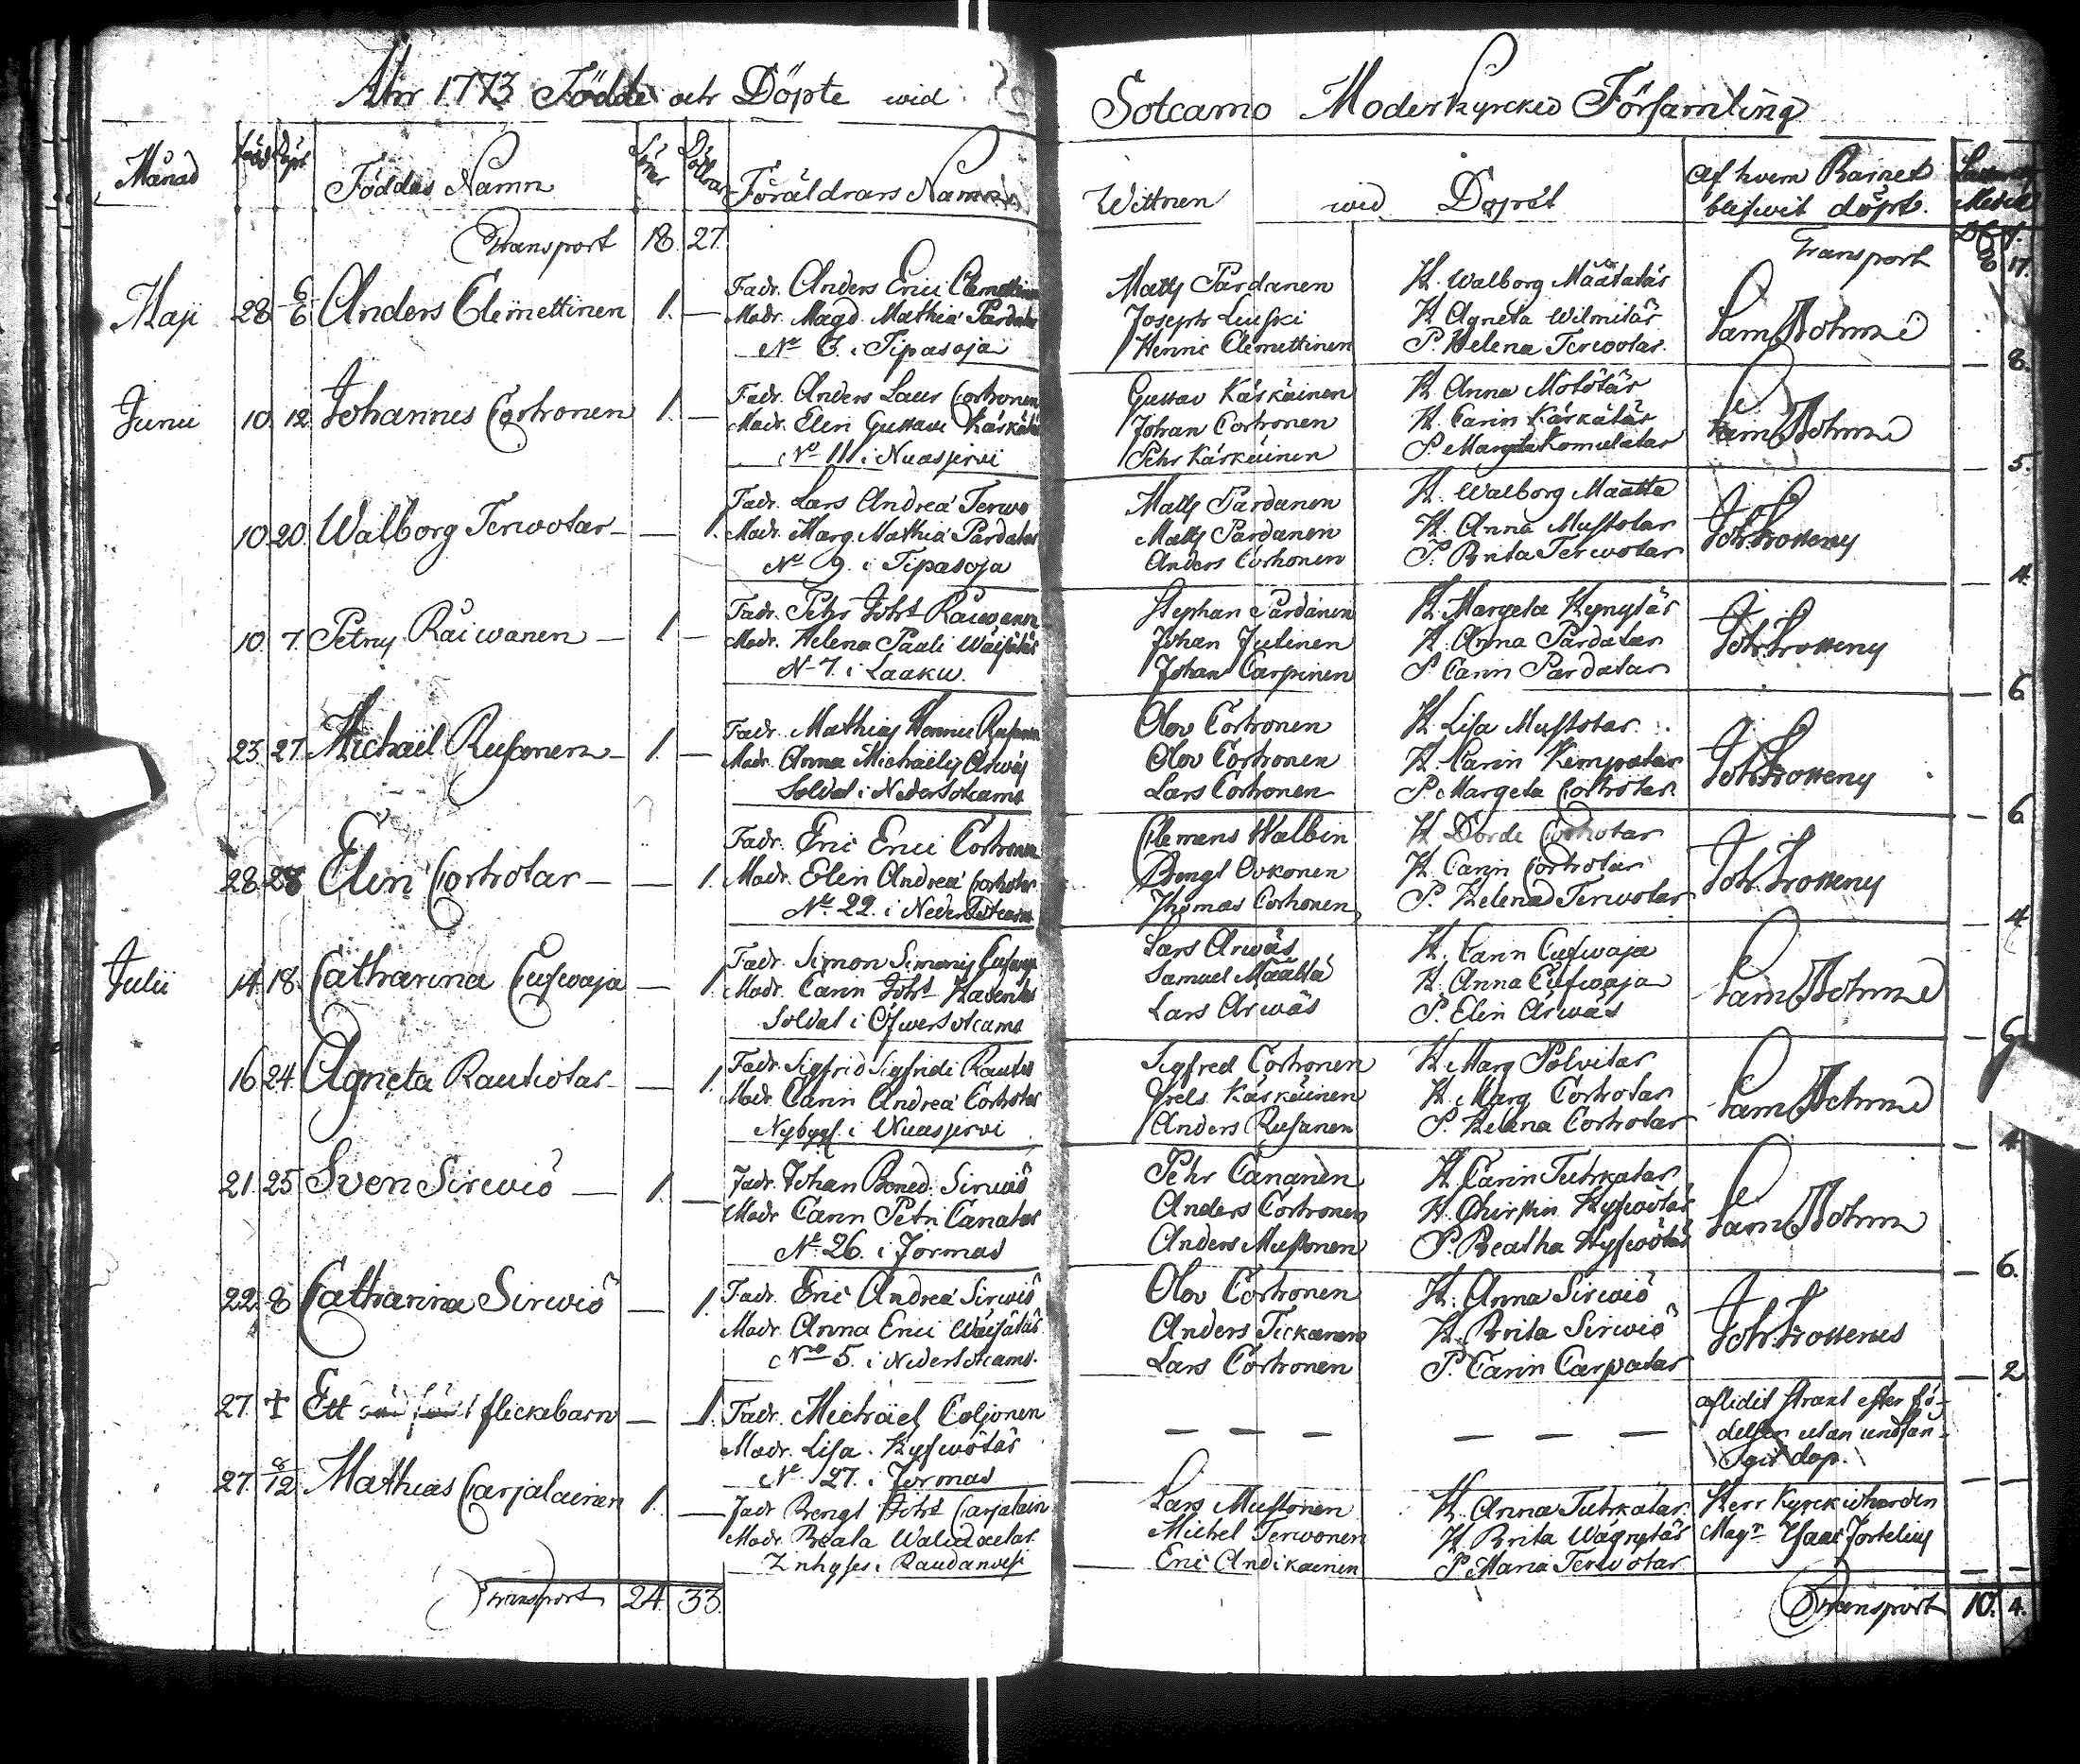 Åhr 1773 Födde och Döpte wid
Sotcamo Moderkyrckio Församling
Månad Född Döpt Föddas Namn Söner Döttrar Föräldrars Namn
Wittnen wid Döpet af hvem Barnet
blifwit döpt.
Transport 18. 27.
Transport 17.
Maji 28 6/6 Anders Clemettinen 1. —
Fadr. Anders Erici Clemettinen
Modr. Magd. Mathiæ Pardatar
No 3. i Tipasoja
Matts Pardanen H. Walborg Määtatär
Joseph Leuski H Agneta Wilmitär
Henric Clemettinen P. Helena Terwotar.
Sam Bohm
8.
Junii 10. 12. Johannes Corhonen 1. —
Fadr. Anders Laurs Corhonen
Modr. Elin Gustavi Käskätär
No 111 i Nuasjerwi
Gustav Käskäinen H Anna Mötötär
Johan Corhonen H. Carin Käskätär
Pehr Käskäinen P Margeta Komulatar
Sam Bohm
5.
10. 20. Walborg Terwotar — — 1.
Fadr. Lars Andreæ Terwo
Modr. Marg. Mathiæ Pardatar
No 9. i Tipasoja
Matts Pardanen H. Walborg Määttä
Matts Pardanen H. Anna Mustotar
Anders Corhonen P. Brita Terwotar
Joh. Frosterus
4.
10. 7. Petrus Räiwänen — 1 —
Fadr. Pehr Joh. Räiwänen
Modr. Helena Paali Wäisätär
No 7. i Laaku.
Stephan Pardanen H. Margeta Hynytär
Johan Julinen H. Anna Pardatar
Johan Carpinen P. Carin Pardatar
Joh. Frosterus
6
23. 27. Michaël Rusanen — 1. —
Fadr. Mathias Rusanen
Modr. Anna Michaelis Arwäs
Soldat i Nedersotcamo
Olov Corhonen H. Lisa Mustotar.
Olov Corhonen H. Carin Kempatar
Lars Corhonen P. Margeta Corhotar.
Joh. Frosterus
6
28. 28 Elin Corhotar — — 1.
Fadr. Eric Erici Corhonen
Modr. Elin Andreæ Corhotar.
No 22. i Nedersotcamo
Clemens Walbin H Dorde Corhotar
Bengt Ovkonen H. Carin Corhotar
Thomas Corhonen P. Helena Terwotar
Joh. Frosterus
4
Julii 14. 18. Catharina Cuswaja — 1.
Fadr. Simon Simonis Cuswaja
Modr. Carin Joh.
Soldat i Öfwersotcamo
Lars Arwäs H. Carin Cuswaja
Samuel Määttä H. Anna Cuswaja
Lars Arwäs P. Elin Arwäs
Sam Bohm
6
16. 24. Agneta Rautiotar — — 1.
Fadr. Sigfrid Sigfridi Rautio
Modr. Carin Andreæ Corhotar
Nybygg. i Nuasjerwi
Sigfred Corhonen H. Marg Polvitar
Nels Käskäinen H. Marg Corhotar
Anders Rusanen P. Helena Corhotar
Sam Bohm
4
21. 25 Sven Sirwiö — 1. —
Fadr. Johan Bened. Sirwiö
Modr. Carin Petri Canatar
No 26. i Jormas
Pehr Cananen H. Carin Tuhkatar
Anders Corhonen H. Chirstin Hyswötär
Anders Mustonen P. Beatha Hyswötär
Sam Bohm
6.
22. 8 Catharina Sirwiö — 1.
Fadr. Eric Andreæ Sirwiö
Modr. Anna Erici Wäisätär
No 5. i Nedersotcamo.
Olov Corhonen H. Anna Sirwiö
Anders Tickanen H. Brita Sirwiö
Lars Corhonen P. Carin Carpatar
Joh. Frosterus
2
27. † Ett flickebarn — 1.
Fadr. Michäel Coljonen
Modr. Lisa Hyswötär
No 27. i Jormas
— — — — — —
aflidit strax efter fö-
delsen utan undfån-
git dop.
27. 8/12 Mathias Carjalainen 1. —
Fadr Bengt Joh. Carjalain
Modr. Beata
Inhyses i Raudanwesi
Lars Mustonen H. Anna Tuhkatar
Michel Terwonen H. Brita Wägnytär
Eric Andikainen P. Maria Terwotar
Herr Kyrckioherden
Magr Isaac Fortelius
Transport 24. 33.
Transport 10. 4.